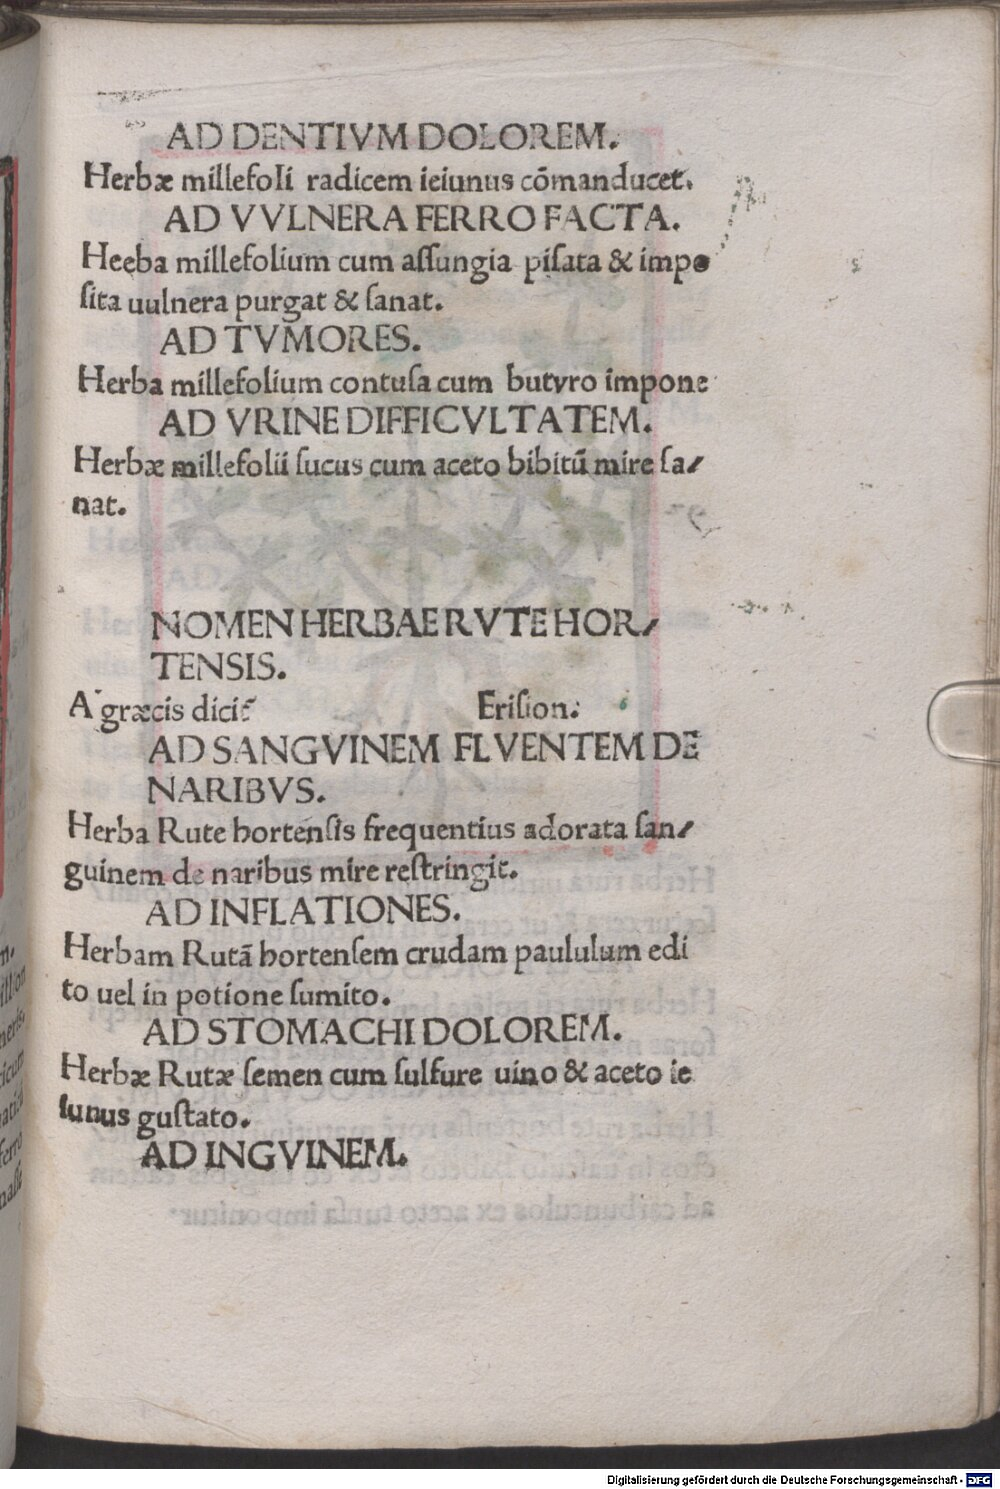 AD DENTIVM DOLOREM.
Herbæ millefoli radicem ieiunus cōmanducet.
AD VVLNERA FERRO FACTA.
Heeba millefolium cum aſſungia piſata & impo
ſita uulnera purgat & ſanat.
AD TVMORES.
Herba millefolium contuſa cum butyro impone
AD VRINE DIFFICVLTATEM.
Herbæ millefolii ſucus cum aceto bibitū mire ſa/
nat.
NOMEN HERBAE RVTE HOR/
TENSIS.
A græcis dicit̃ Eriſion.
AD SANGVINEM FLVENTEM DE
NARIBVS.
Herba Rute hortenſis frequentius adorata ſan/
guinem de naribus mire reſtringit.
AD INFLATIONES.
Herbam Rutā hortenſem crudam paululum edi
to uel in potione ſumito.
AD STOMACHI DOLOREM.
Herbæ Rutæ ſemen cum ſulfure uino & aceto ie
iunus guſtato.
AD INGVINEM.
Digitalisierung gefördert durch die Deutsche Forschungsgemeinschaft - DFG